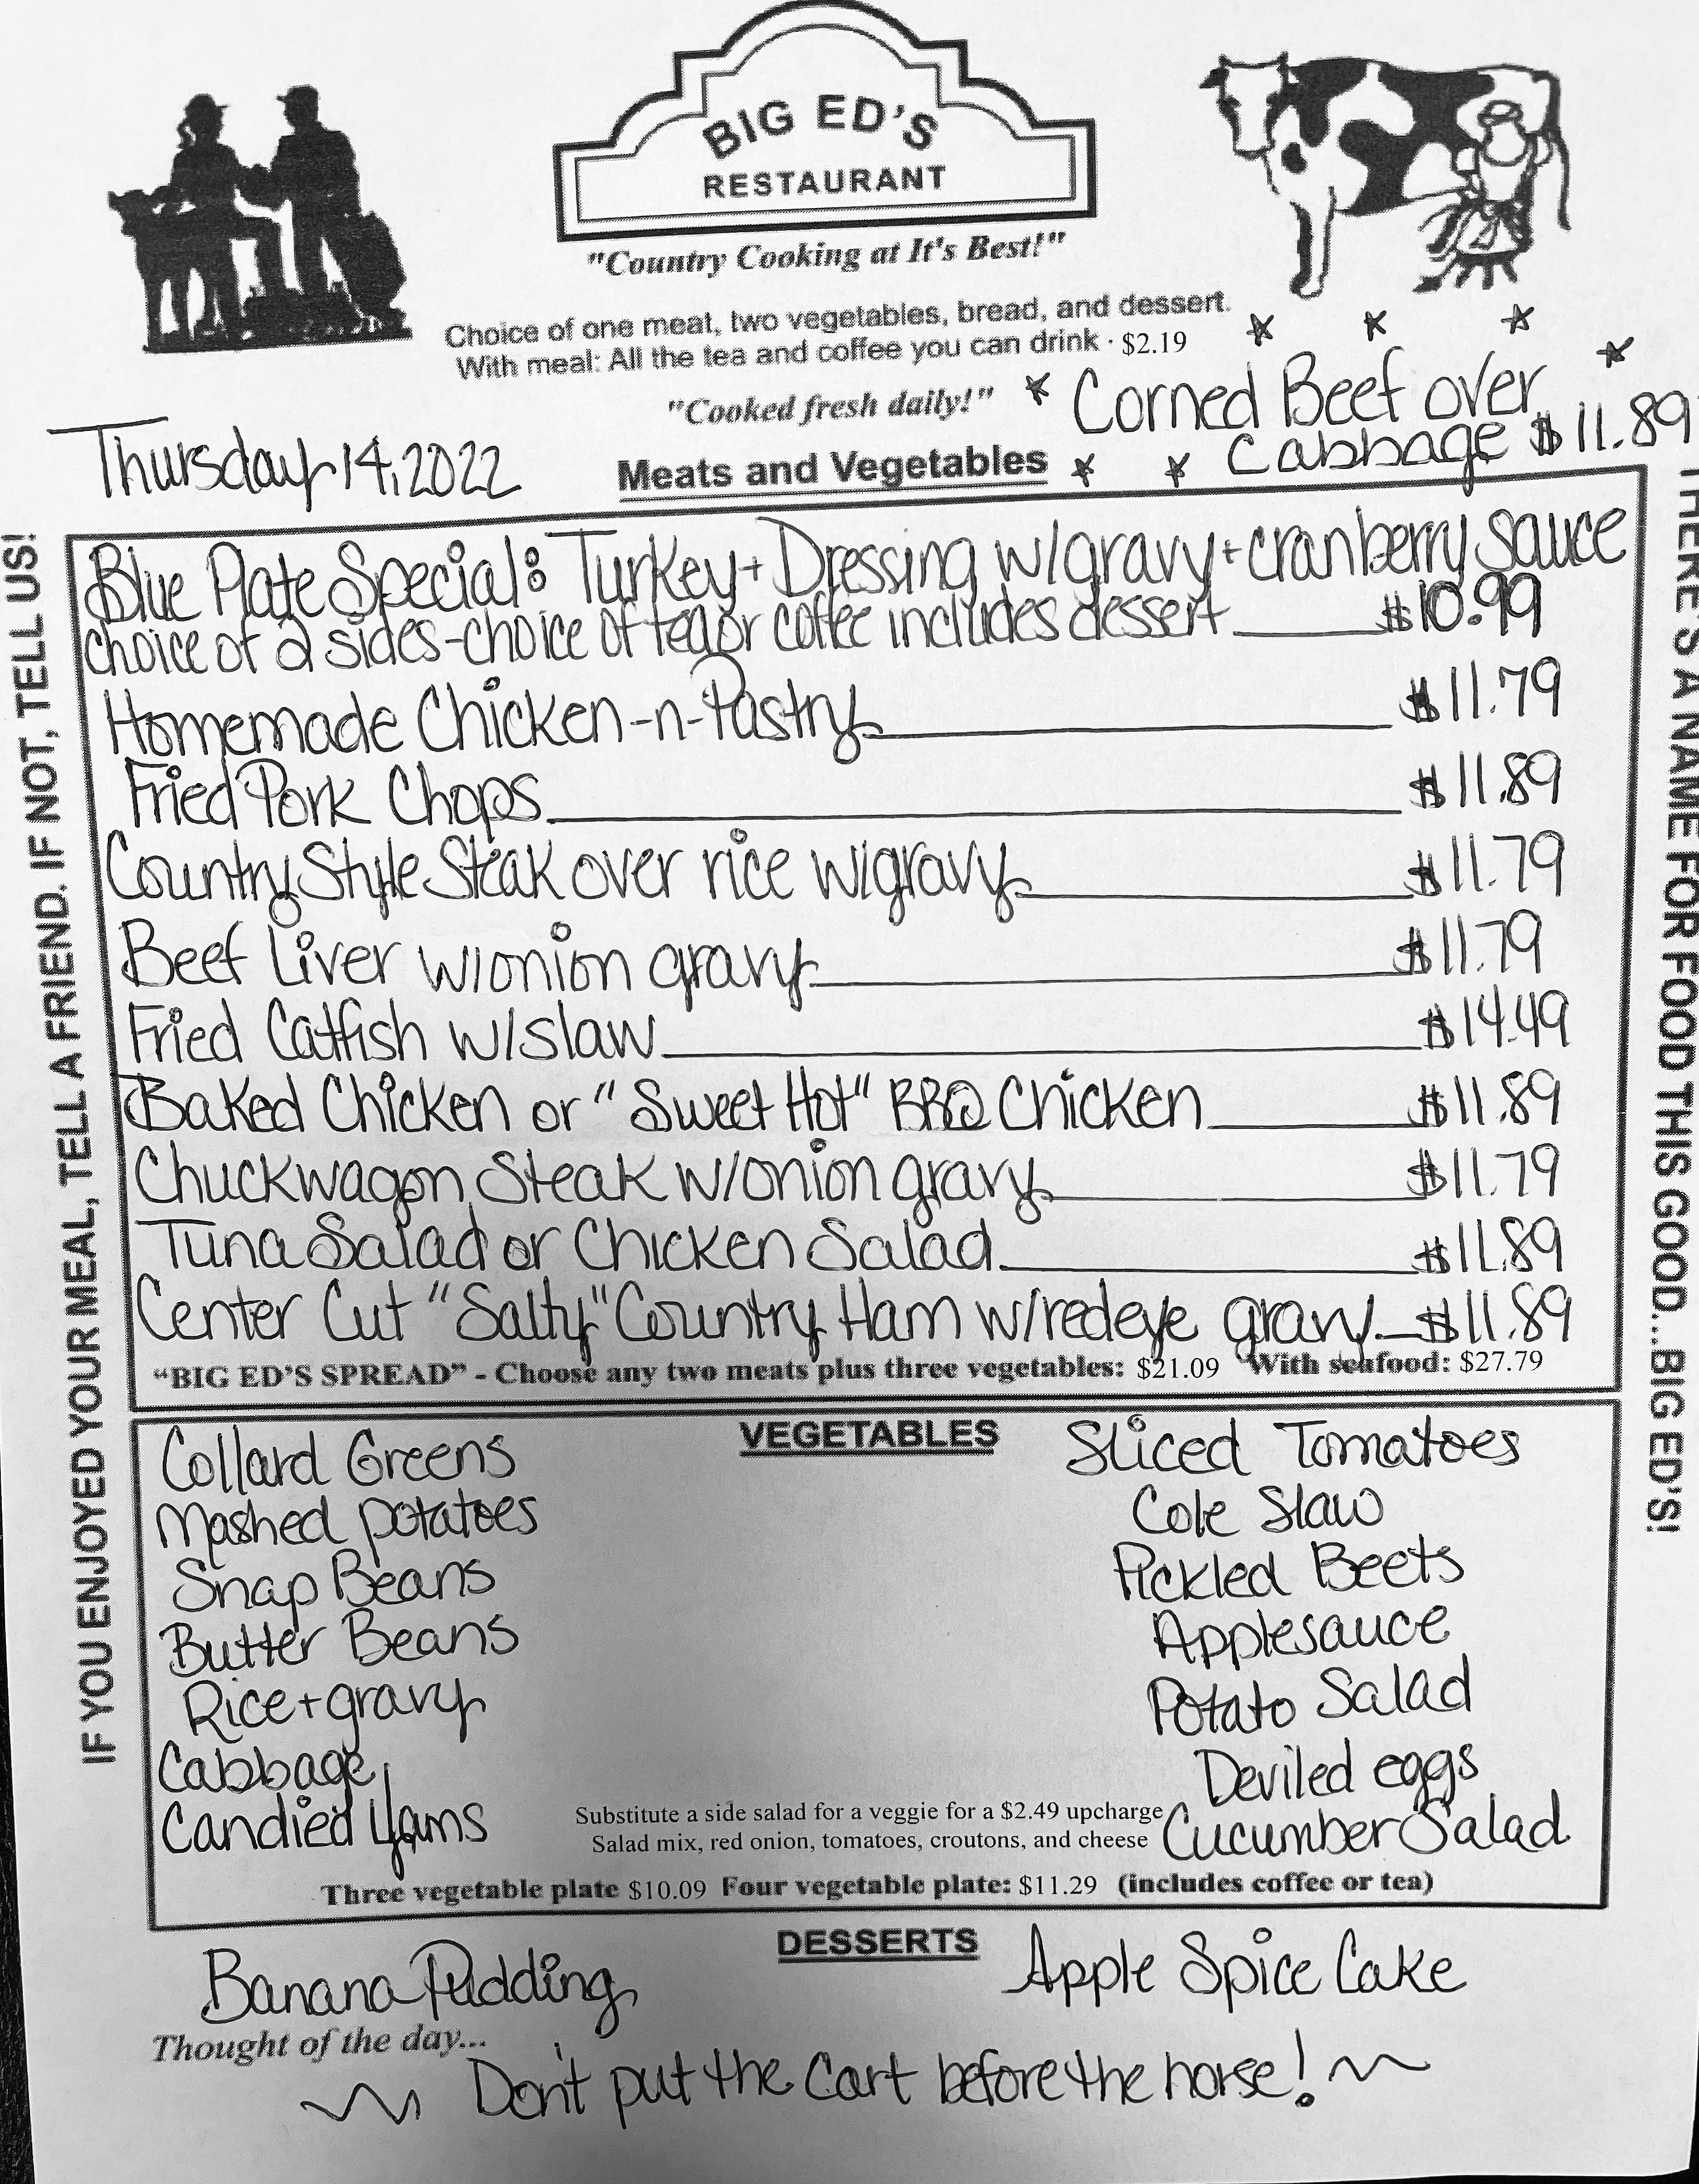 BIG ED'S
RESTAURANT
"Country Cooking at It's Best!"
Choice of one meat, two vegetables, bread, and dessert.
With meal: All the tea and coffee you can drink · $2.19
"Cooked fresh daily!"
Corned Beef over
Cabbage $11.89
Thursday 14, 2022
Meats and Vegetables
IF YOU ENJOYED YOUR MEAL, TELL A FRIEND. IF NOT, TELL US!
Blue Plate Special: Turkey + Dressing w/gravy + cranberry sauce
choice of 2 sides - choice of tea or coffee includes dessert $10.99
Homemade Chicken-n-Pastry $11.79
Fried Pork Chops $11.89
Country Style Steak over rice w/gravy $11.79
Beef Liver w/onion gravy $11.79
Fried Catfish w/slaw $14.49
Baked Chicken or "Sweet Hot" BBQ Chicken $11.89
Chuckwagon Steak w/onion gravy $11.79
Tuna Salad or Chicken Salad $11.89
Center Cut "Salty" Country Ham w/redeye gravy $11.89
"BIG ED'S SPREAD" - Choose any two meats plus three vegetables: $21.09 With seafood: $27.79
THERE'S A NAME FOR FOOD THIS GOOD...BIG ED'S!
VEGETABLES
Collard Greens
Mashed potatoes
Snap Beans
Butter Beans
Rice + gravy
Cabbage
Candied Yams
Sliced Tomatoes
Cole Slaw
Pickled Beets
Applesauce
Potato Salad
Deviled eggs
Cucumber Salad
Substitute a side salad for a veggie for a $2.49 upcharge
Salad mix, red onion, tomatoes, croutons, and cheese
Three vegetable plate $10.09 Four vegetable plate: $11.29 (includes coffee or tea)
DESSERTS
Banana Pudding
Apple Spice Cake
Thought of the day...
Don't put the Cart before the horse!